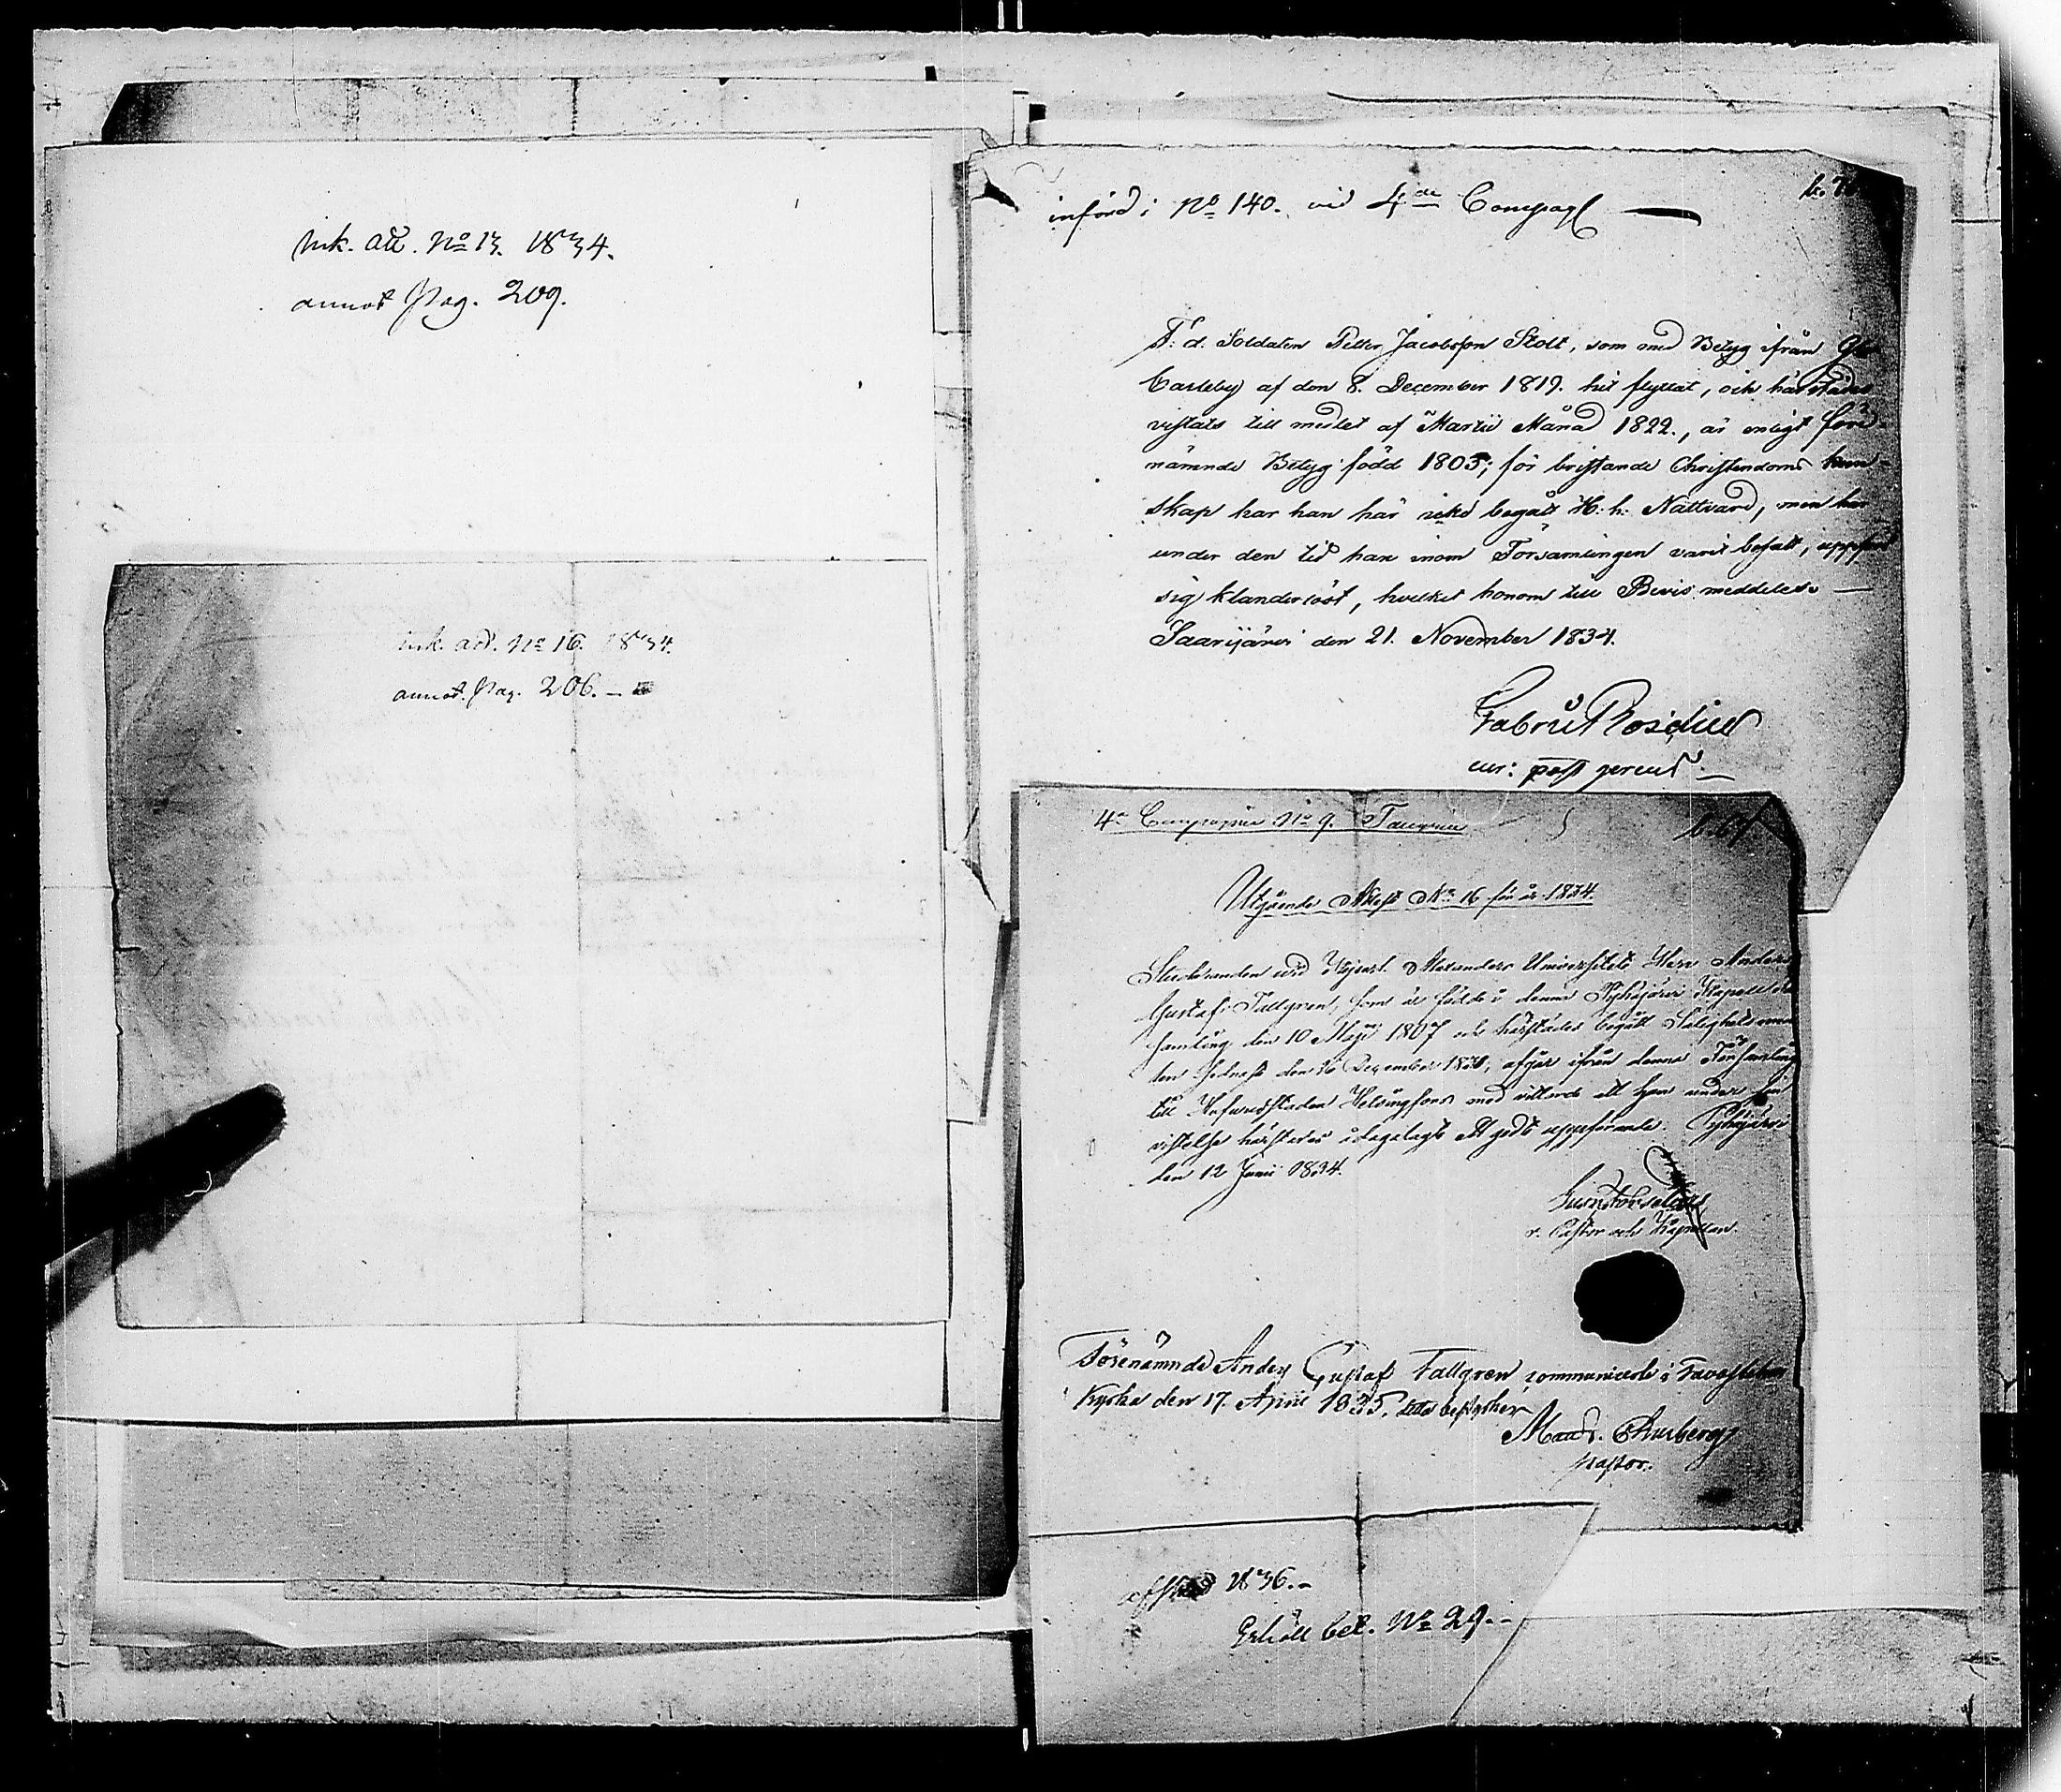 ink. att. No 13. 1834.
annot Pag. 209.
ink. att. No 16. 1834.
annot. Pag. 206. —
införd i No 140. vid 4de Compagn
F: d: Soldaten Petter Jacobsson Stolt, som med Betyg ifrån
Carleby af den 8. December 1819. hit flyttat, och härstädes
vistats till medlet af Martii Månad 1822., är enligt före-
nämnde Betyg född 1805; för bristande Christendoms kun-
skap har han här icke begått H: h: Nattvard, men har
under den tid han inom Församlingen varit bosatt, uppfört
sig klanderlöst, hvilket honom till Bevis meddeles. —
Saarijärvi den 21. November 1834.
Gabriel Roselius
cur: past gerens. —
4e Compagnie No 9. Tallgren
Utgående Attest No 16 för år 1834.
Studeranden vid Kejserl. Alexanders Universitetet Herr Anders
Gustaf Tallgren, som är född i denna Pyhäjärvi Kapell för
samling den 10 Maji 1807 och härstädes begått Salighets
den December, afgår ifrån denna Församling
till Hufvudstaden Helsingfors med vittnde att han under sin
vistelse härstädes ådagalagt Ett godt uppförande. Pyhäjärvi
den 12 Junii 1834.
v. Pastor och Kapellan.
Förenämnde Anders Gustaf Tallgren communicerte i Tavastehus
Kyrka den 17. April 1835, detta bestyrker
Thurberg
Pastor.
1836. –
Erhöll bet. No 29. –